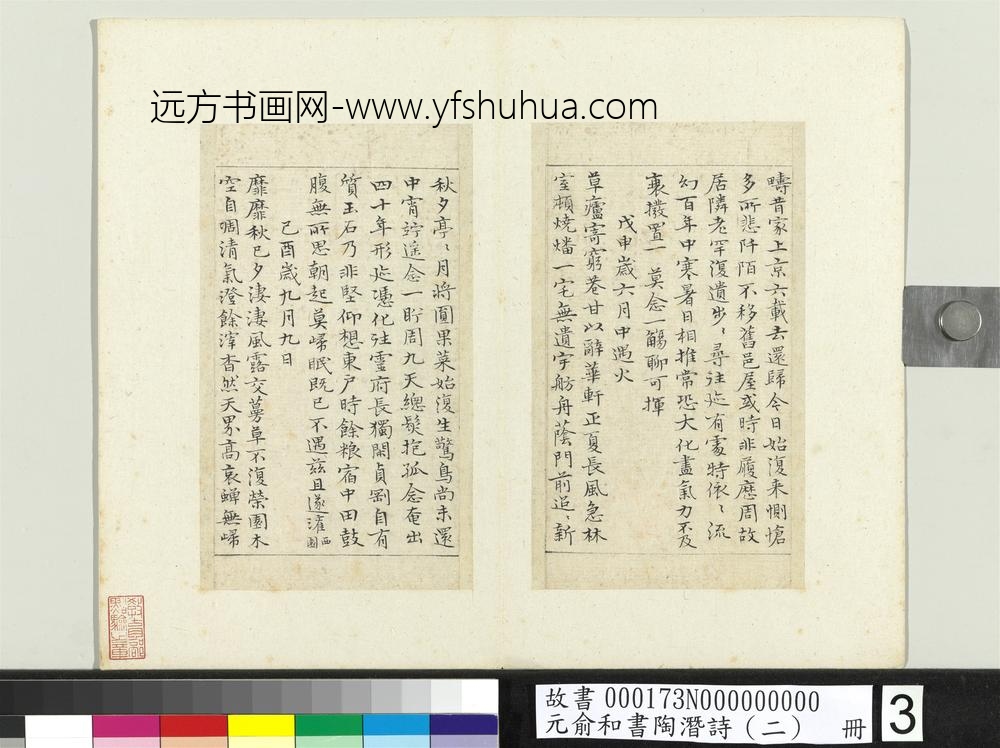 远方书画网-www.yfshuhua.com
疇昔家上京六載去還歸今日始復来惻愴
多所悲阡陌不移舊邑屋或時非履歷周故
居隣老罕復遺步〻尋往迹有處特依〻流
幻百年中寒暑日相推常恐大化盡氣力不及
衰撥置一莫念一觴聊可揮
戊申歲六月中遇火
草廬寄窮巷甘以辭華軒正夏長風急林
室頓燒燔一宅無遺宇舫舟蔭門前迢〻新
秋夕亭〻月將圓果菜始復生驚鳥尚未還
中宵竚遥念一盼周九天總髮抱孤念奄出
四十年形迹憑化往霊府長獨閑貞剛自有
質玉石乃非堅仰想東户時餘粮宿中田鼓
腹無所思朝起莫歸眠既已不遇兹且遂灌西園
己酉歲九月九日
靡靡秋已夕淒淒風露交蔓草不復榮園木
空自凋清氣澄餘滓杳然天界高哀蟬無歸
故書 000173N000000000
元俞和書陶潛詩（二） 冊
3